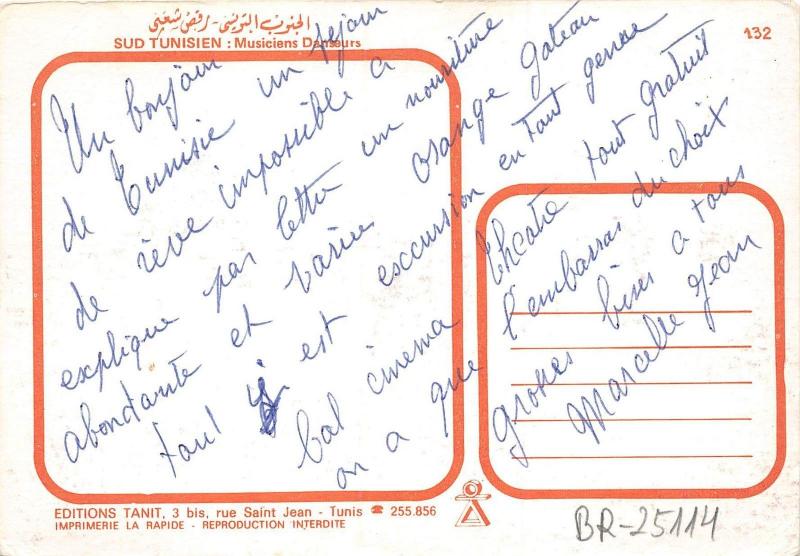 الجنوب التونسي - رقص شعبي
SUD TUNISIEN : Musiciens Danseurs
132
Un bonjour
de Tunisie un sejour
de rêve impossible a
explique par lettre un nourriture
abondante et varíee orange gateau
tout y est excursion en tout genre
bal cinema theatre tout gratuit
on a que l'embarras du choix
grosses bises a tous
Marcelle Jean
EDITIONS TANIT, 3 bis, rue Saint Jean - Tunis ☎ 255.856
IMPRIMERIE LA RAPIDE - REPRODUCTION INTERDITE
BR-25114